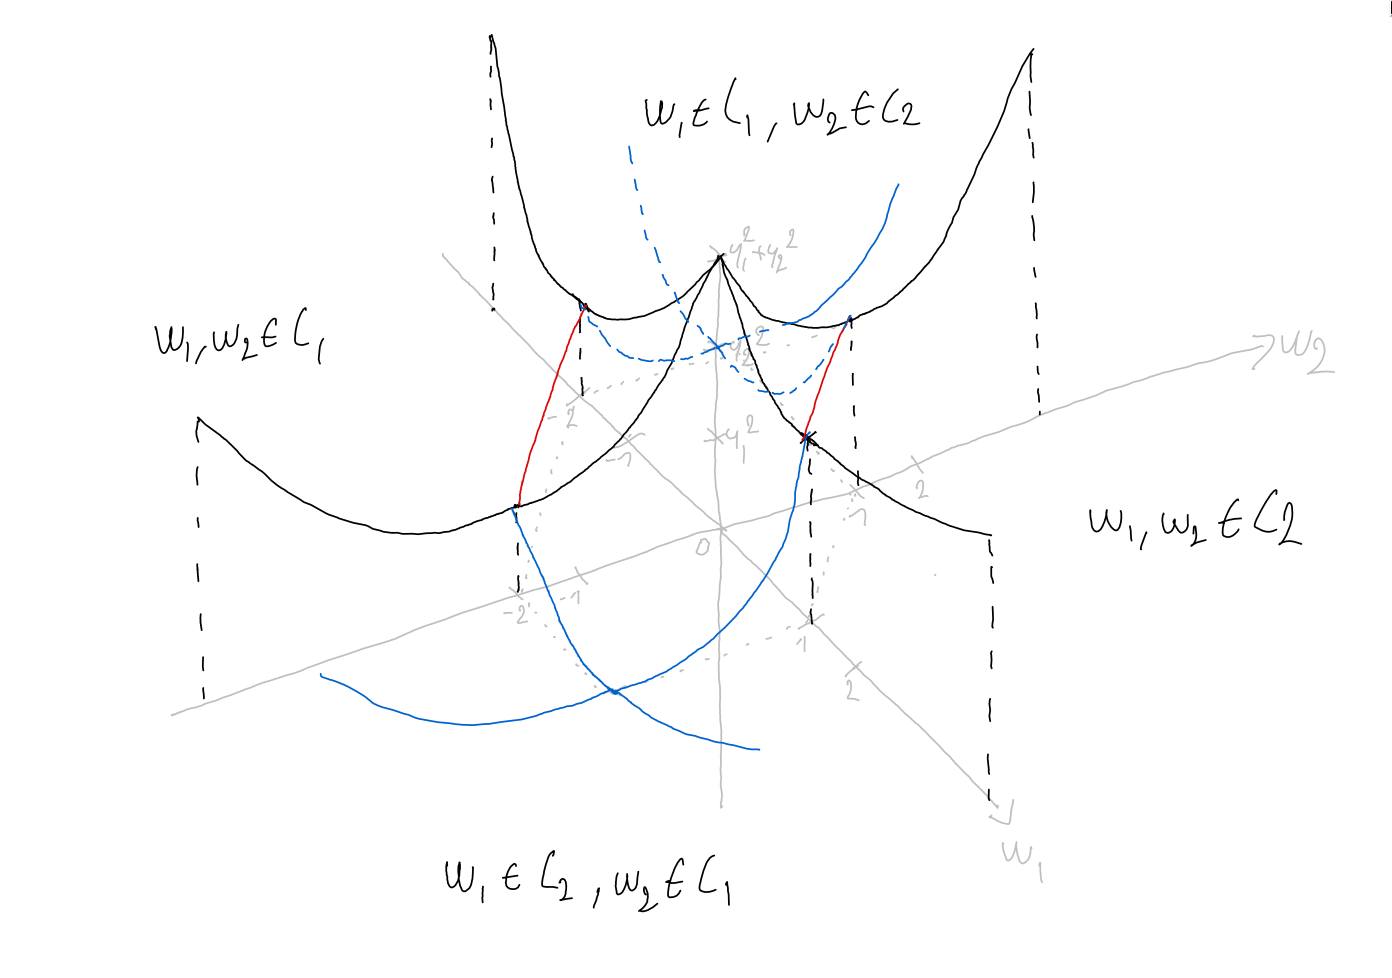 w₁ ∈ C₁, w₂ ∈ C2
y₁² + y₂²
w₁, w₂ ∈ C₁
w2
y₂²
-2
y₁²
-1
2
-1
w₁, w₂ ∈ C2
0
-1
-2
1
2
w₁
w₁ ∈ C₂, w₂ ∈ C₁